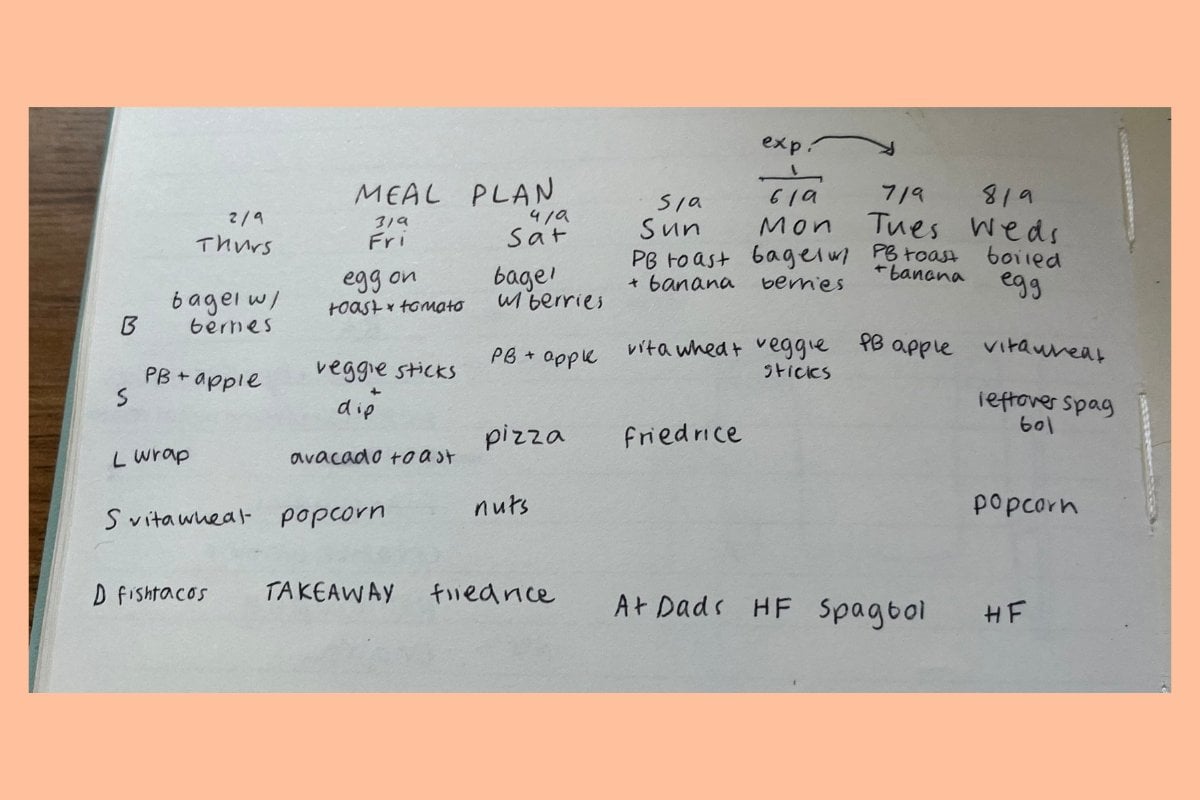 exp.
MEAL PLAN
2/9 3/9 4/9 5/9 6/9 7/9 8/9
Thurs Fri Sat Sun Mon Tues Weds
bagel w/ egg on bagel PB toast bagel w/ PB toast boiled
berries toast + tomato w/ berries + banana berries + banana egg
B
PB + apple veggie sticks PB + apple vitawheat veggie PB apple vitawheat
+ sticks
S dip
leftover spag
bol
L wrap avacado toast pizza friedrice
S vitawheat popcorn nuts popcorn
D fishtacos TAKEAWAY friedrice At Dads HF Spagbol HF